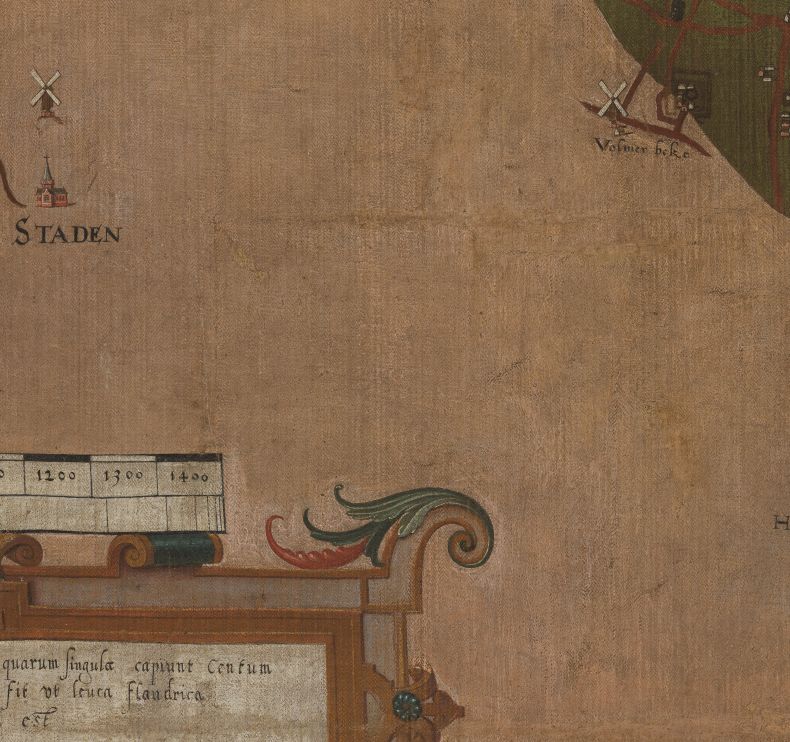 Volmer beke
STADEN
1200 1300 1400
H
quarum singulæ capiunt Centum
fit vt leuca flandrica
est